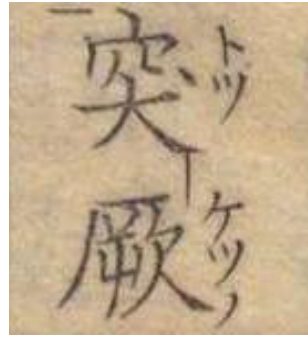 突厥
トツケツノ